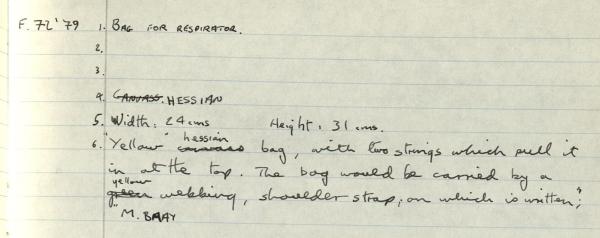 F. 72'79 1. BAG FOR RESPIRATOR.
2.
3.
4. CANVASS. HESSIAN
5. Width: 24 cms Height: 31 cms.
6. "Yellow" hessian canvass bag, with two strings which pull it
in at the top. The bag would be carried by a
yellow green webbing, shoulder strap, on which is written;
"M. BRAY"